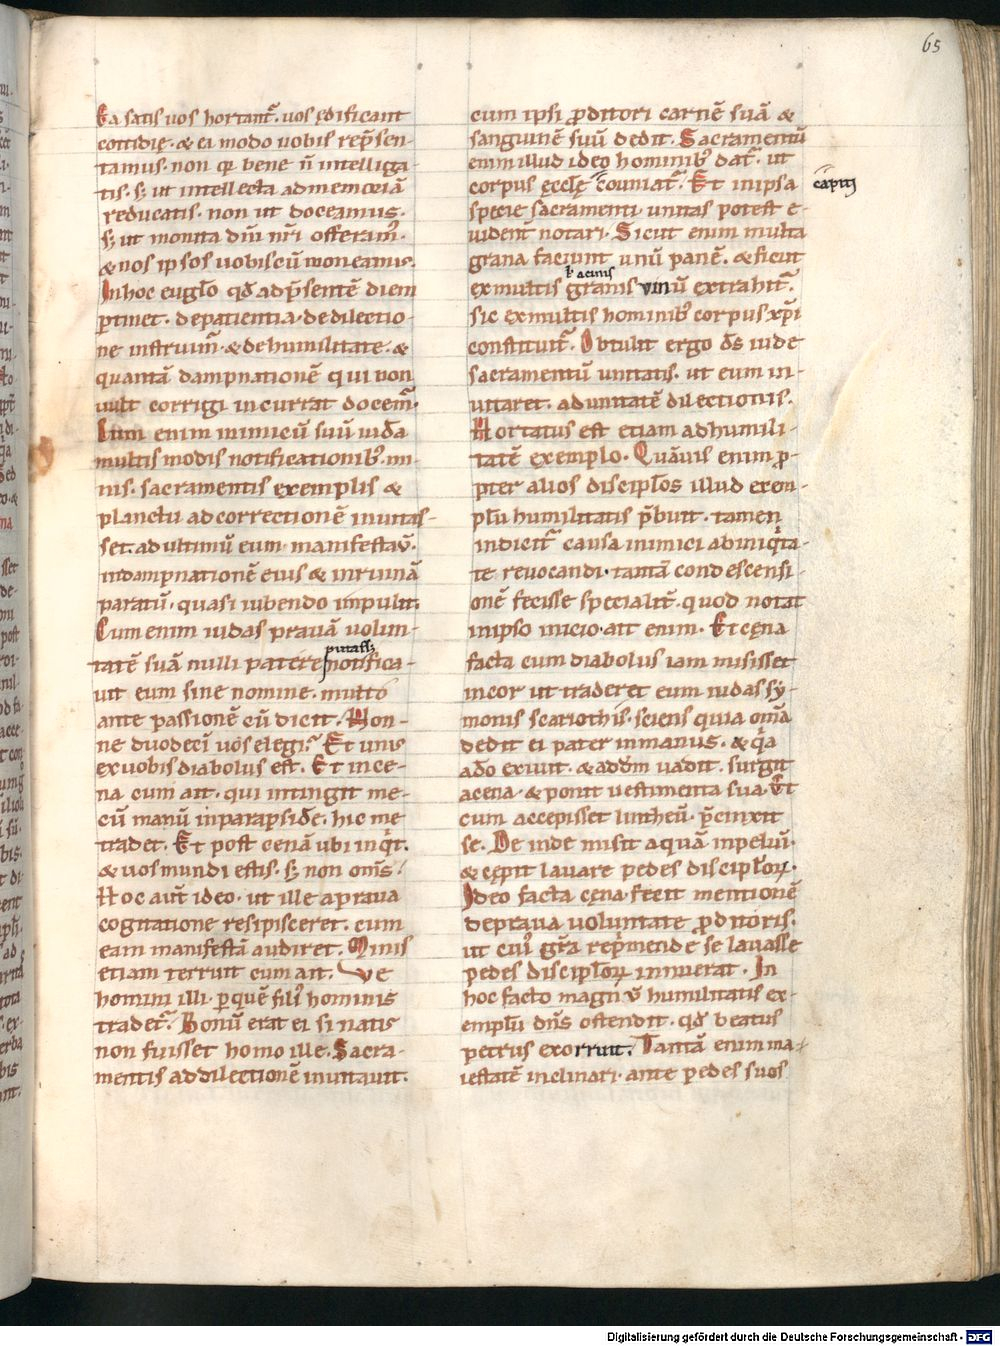 65
Ea satis uos hortant᷑. uos ędificant
cottidię. & ea modo uobis rep̄sen-
tamus. non q̄ bene n̄ intelliga-
tis. sꝫ ut intellecta ad memoriā
reducatis. non ut doceamus.
sꝫ ut monita dn̄i nr̄i offeram᷒.
& nos ipsos uobiscū moneamus.
In hoc eug̅lo qd̄ ad p̄sentē diem
ꝑtinet. de patientia. de dilectio-
ne instruim᷒. & de humilitate. &
quantā dampnationē qui non
uult corrigi incurrat docem᷒.
Dum enim inimicū suū iudā
multis modis notificationib᷒. mi-
nis. sacramentis exemplis &
planctu ad correctionē inuitas-
set. ad ultimū eum manifestaū.
in dampnationē eius & in ruinā
paratū. quasi iubendo impulit.
Cum enim iudas prauā uolun-
putass&
tatē suā nulli patere notifica-
uit eum sine nomine. multo
ante passionē cū dicit. Non-
ne duodeci uos elegi? Et unus
ex uobis diabolus est. Et in ce-
na cum ait. qui intingit me-
cū manū in parapside. hic me
tradet. Et post cenā ubi inqͥt.
& uos mundi estis. sꝫ non om̄s.
Hoc aut̄ ideo. ut ille a praua
cogitatione resipisceret. cum
eam manifestā audiret. Minis
etiam terruit cum ait. Ve
homini illi. ꝑ quē fili᷒ hominis
tradet᷑. Bonū erat ei si natus
non fuisset homo ille. Sacra-
mentis ad dilectionē inuitauit.
cum ipsi ꝓditori carnē suā &
sanguinē suū dedit. Sacramentū
enim illud ideo hominib᷒ dat᷑. ut
corpus ęcclę couniat᷑. Et in ipsa
capiti
specie sacramenti unitas potest e-
uident̄ notari. Sicut enim multa
grana faciunt unū panē. & sicut
ł acinis
ex multis granis vinū extrahit᷑.
sic ex multis hominib᷒ corpus xp̄i
constituit᷑. Obtulit ergo ds̄ iude
sacramentū unitatis. ut eum in-
uitaret. ad unitatē dilectionis.
Hortatus est etiam ad humili-
tatē exemplo. Quāuis enim ꝓ-
pter alios discipl̄os illud exem-
pl̄u humilitatis p̄buit. tamen
indicit᷑ causa inimici ab iniqͥta-
te reuocandi. tantā condescensi-
onē fecisse specialit᷑. quod notat
in ipso inicio. ait enim. Et cęna
facta cum diabolus iam misisset
in cor ut traderet eum iudas sy-
monis scariothis. sciens quia om̄a
dedit ei pater in manus. & qͥa
a do exiuit. & ad dm̄ uadit. surgit
a cena. & ponit uestimenta sua. Et
cum accepisset lintheū. p̄cinxit
se. Deinde misit aquā in peluī.
& cępit lauare pedes discipl̄oꝝ.
Ideo facta cęna fecit mentionē
de praua uoluntate ꝓditoris.
ut cui᷒ gr̄a rep̄mendę se lauasse
pedes discipl̄oꝝ innuerat. In
hoc facto magni ū humilitatis ex-
empl̄u dn̄s ostendit. qd̄ beatus
petrus exorruit. Tantā enim ma-
iestatē inclinari. ante pedes suos
Digitalisierung gefördert durch die Deutsche Forschungsgemeinschaft - DFG